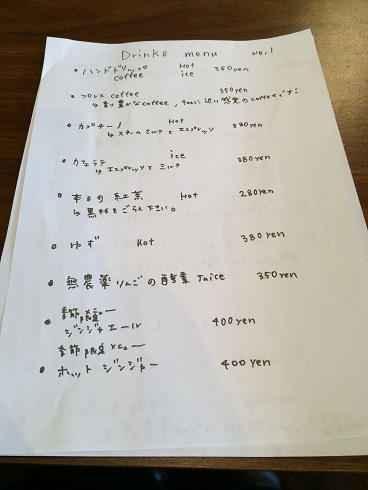 Drinks menu No.1
・ハンドドリップ coffee Hot ice 350yen
・プレス coffee 350yen
↳香り豊かなcoffee, teaに近い感覚のcoffeeです!
・カプチーノ Hot 380yen
↳スチームミルクとエスプレッソ
・カフェラテ ice 380yen
↳エスプレッソとミルク
・本日の紅茶 Hot 280yen
↳黒板をごらん下さい。
・ゆず Hot 380yen
・無農薬りんごの酵素Juice 350yen
季節限定メニュー
・ジンジャエール 400yen
季節限定メニュー
・ホットジンジャー 400yen